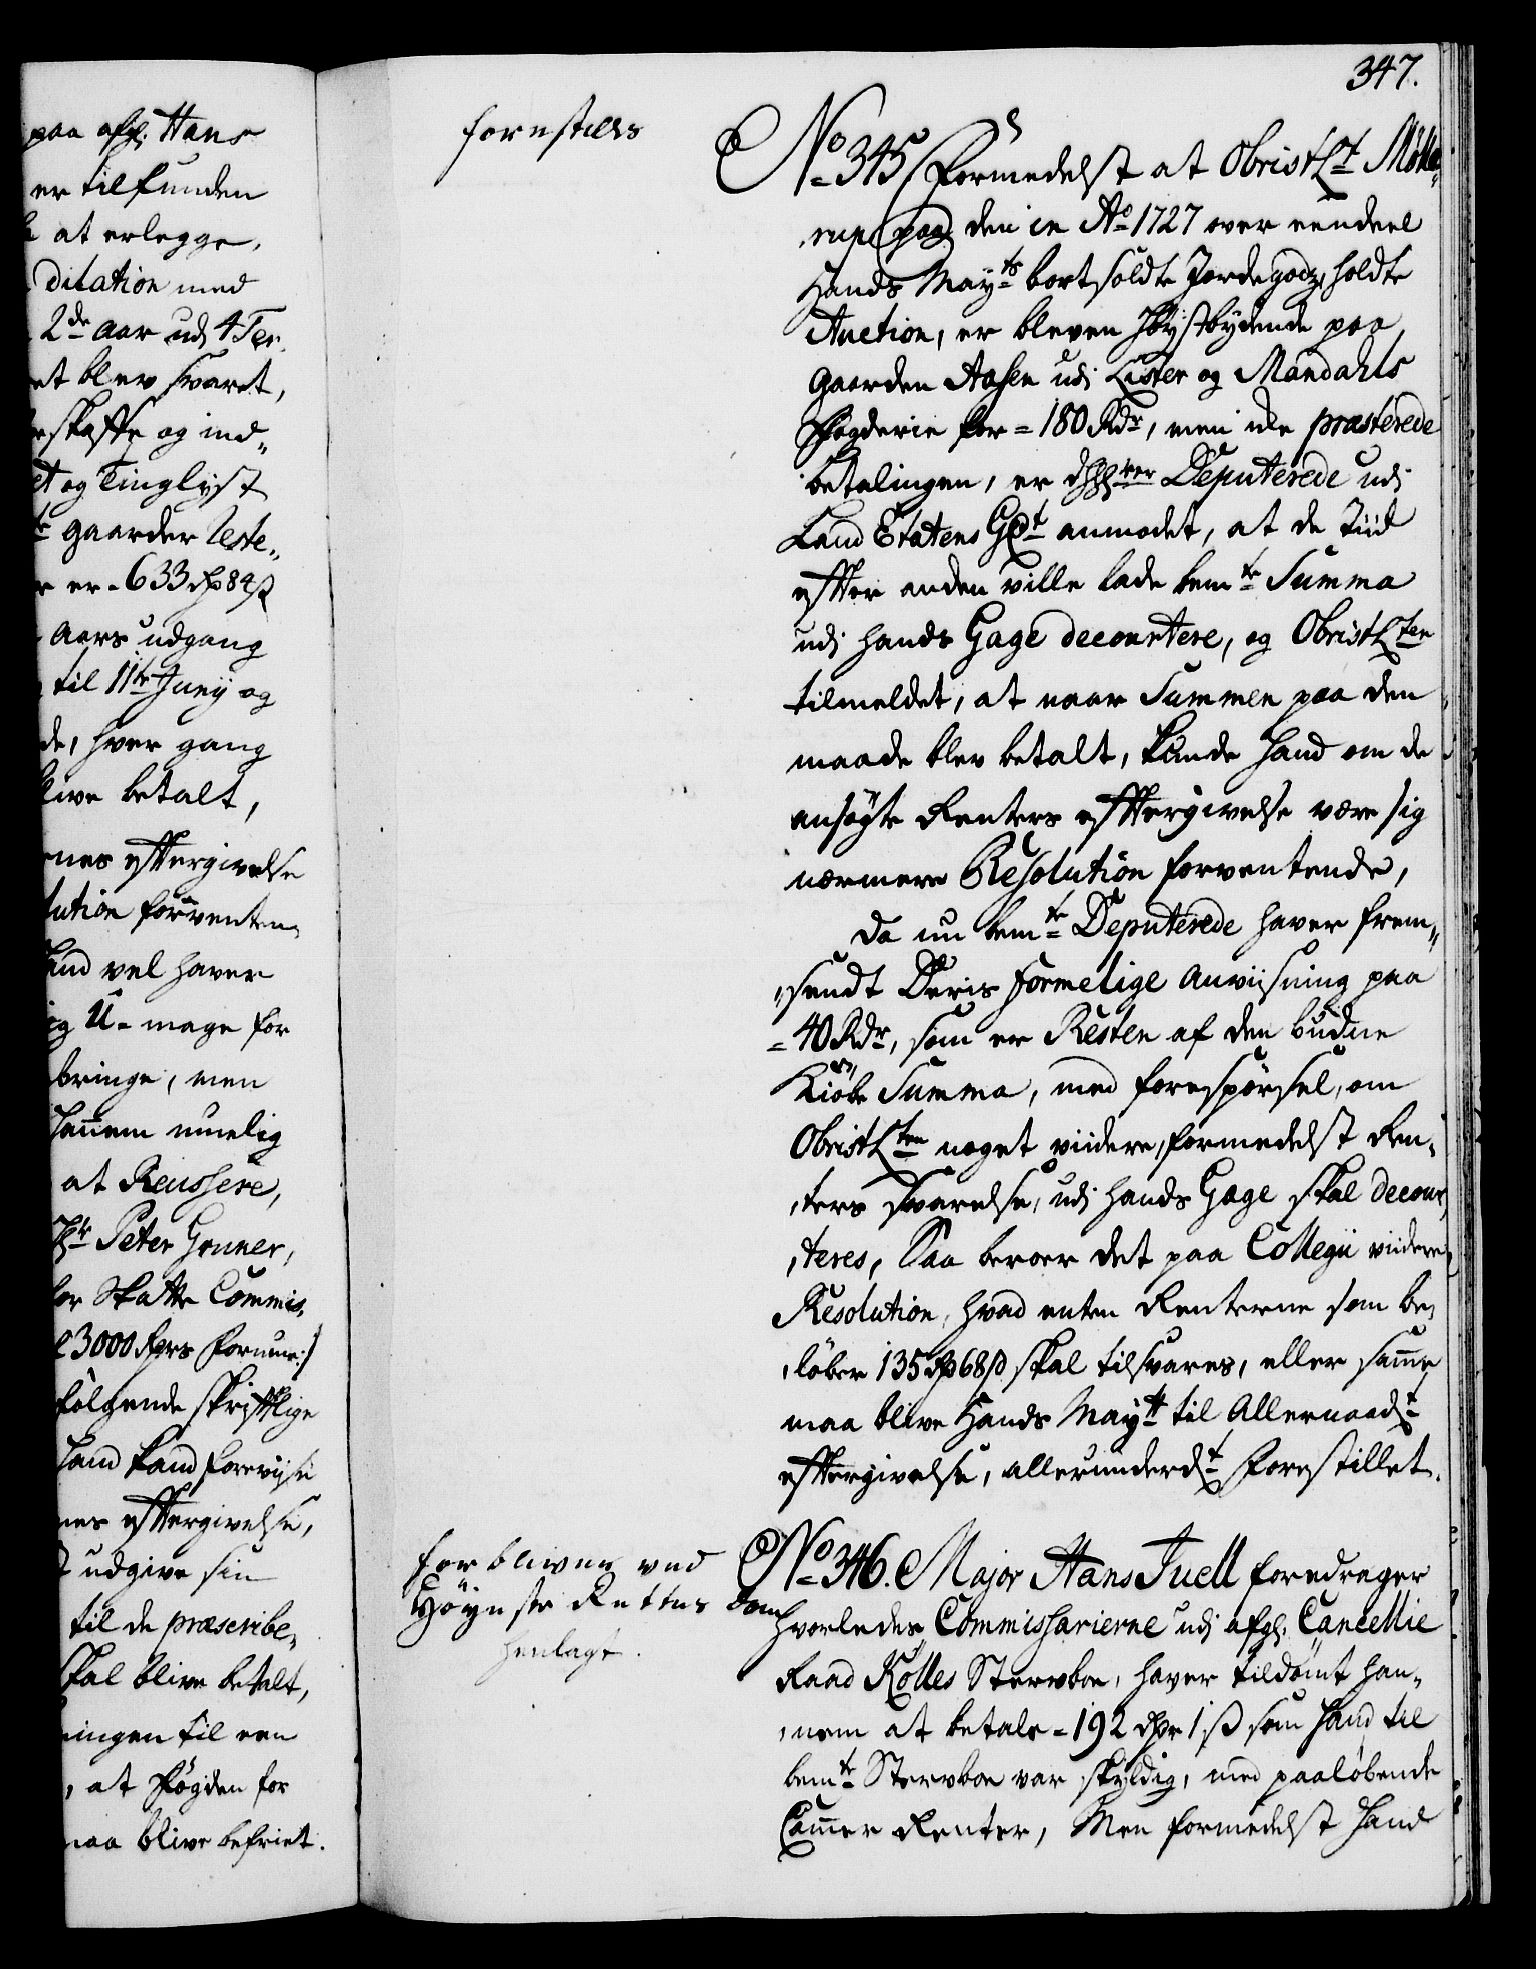 paa afg: Hans
er tilfunden
at erlegge,
ditation med
2de aar udj 4 Ter
et blev svaret,
skaffe og ind„
et og Tinglyst
te gaarder Reste„
er - 633 rdr 84 ß
Aars udgang
til 11te Junij og
de, hver gang
blive betalt,
nes efftergivelse
lution forventen
hand vel haver
ig U-mage for
bringe, men
hannem umuelig
at Reussere,
Sr Peter Gonner,
for Skatte Commis„
3000 rdrs formue:/
følgende skrifftlige
hand kand forevise
nes efftergivelse,
udgive sin
til de præscribe„
skal blive betalt,
ningen til een
, at fogden for
maa blive befriet.
347.
forestilles
No 345 Formedelst at ObristLt Mølle„
„rup paa den in Ao 1727 over eendeel
Hands Mayts bortsoldte Jordegodz, holdte
Auction, er bleven høystbydende paa
gaarden Aasen udj Lister og Mandahls
fogderie for = 180 Rdr, men icke præsterede
betalingen, er Deputerede udj
Land Etatens anmodet, at de Tiid
effter anden ville lade bemte Summa
udj hands Gage decourtere, og ObristLten
tilmeldet, at naar Summen paa den
maade blev betalt, kunde hand om de
ansøgte Renters efftergivelse være sig
nærmere Resolution forventende,
Da nu bemte Deputerede haver frem„
„sendt Deris formelige anviisning paa
= 40 Rdr, som er Resten af den budne
Kiøbe Summa, med forespørsel, om
ObristLten noget viidere, formedelst Ren„
„ters svarelse, udj hands Gage skal decour„
„teres, Saa beroer det paa Collegii viidere
Resolution, hvad enten Renterne som be„
„løber 135 rdr 68 ß skal tilsvares, eller samme
maa blive Hands Mayt til Allernaadt
efftergivelse, allerunderdt forestillet.
forbliver ved
Høyeste Rettes dom
henlagt.
No 346. Major Hans Juell foredrager
hvorledes Commissarierne udj afg: Cancellie
Raad Kølles Stervboe, haver tildømt han„
„nem at betale = 192 rdr 1 ß som hand til
bemte Stervboe var skyldig, med paaløbende
Cammer Renter, Men formedelst hand